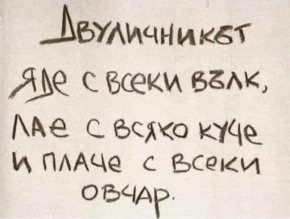 Двуличникът
яде с всеки вълк,
лае с всяко куче
и плаче с всеки
овчар.